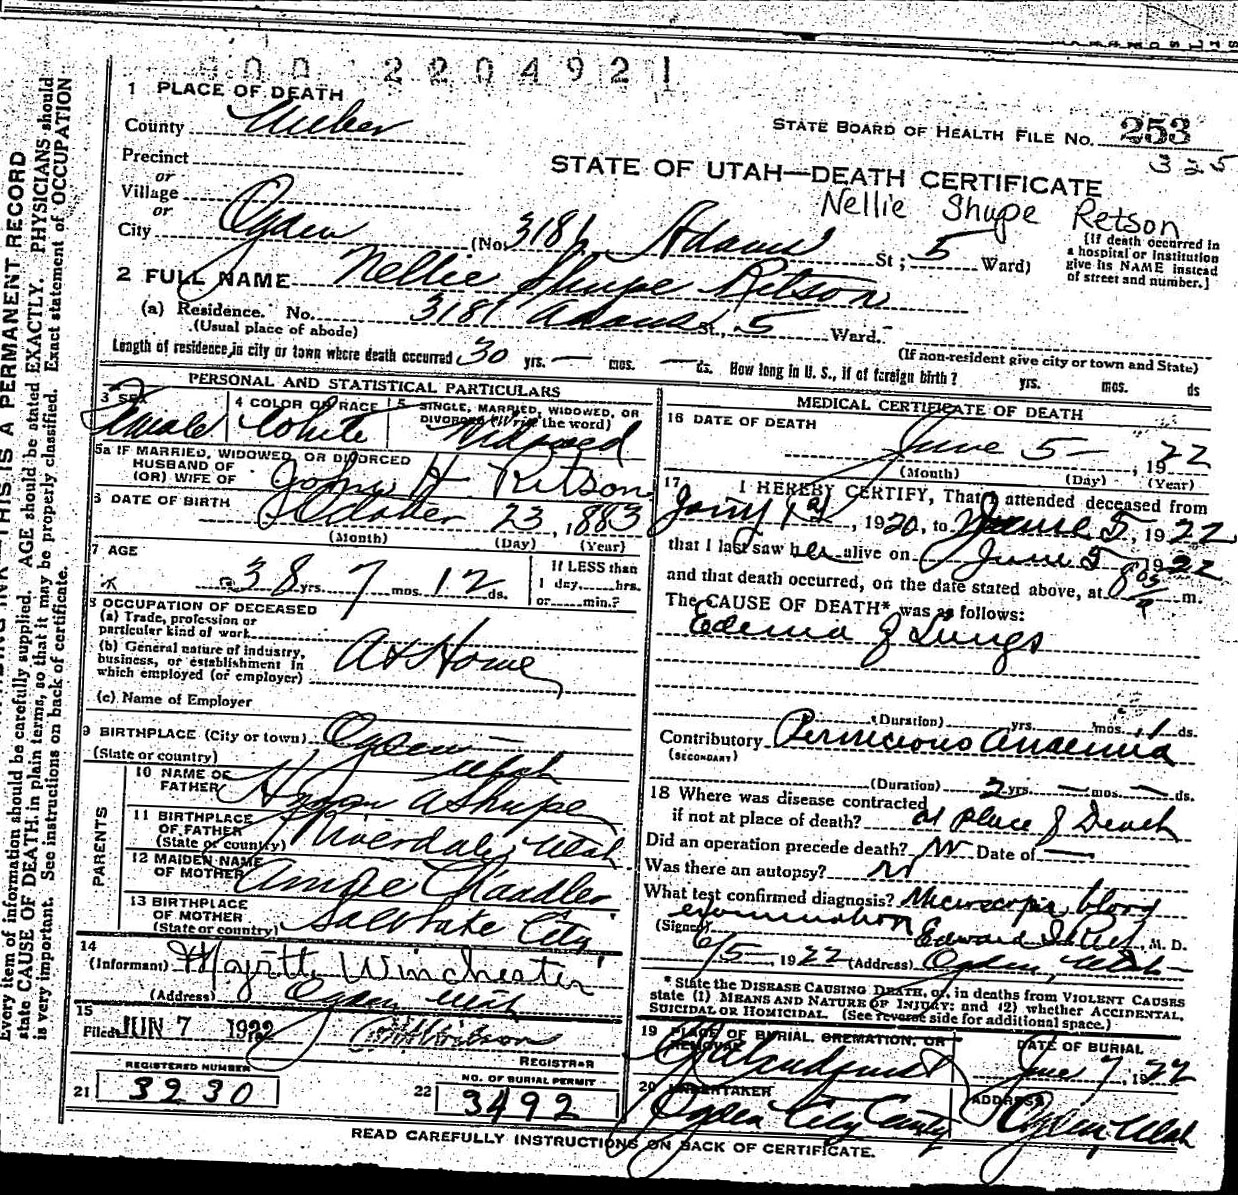 00 2204921
1 PLACE OF DEATH
County Weber
STATE BOARD OF HEALTH FILE No. 253
325
Precinct
or
Village
or
STATE OF UTAH—DEATH CERTIFICATE
Nellie Shupe Retson
City Ogden (No. 3181 Adams St; 5 Ward)
[If death occurred in
a hospital or institution
give its NAME instead
of street and number.]
2 FULL NAME Nellie Shupe Retson
(a) Residence. No. 3181 Adams St., 5 Ward.
(Usual place of abode)
(If non-resident give city or town and State)
Length of residence in city or town where death occurred 30 yrs. — mos. — ds. How long in U. S., if of foreign birth? yrs. mos. ds
PERSONAL AND STATISTICAL PARTICULARS
3 SEX
Female
4 COLOR OR RACE
White
5 SINGLE, MARRIED, WIDOWED, OR
DIVORCED (Write the word)
Widowed
5a IF MARRIED, WIDOWED, OR DIVORCED
HUSBAND OF
(OR) WIFE OF John H Retson
6 DATE OF BIRTH
October 23, 1883
(Month) (Day) (Year)
7 AGE
38 yrs. 7 mos. 12 ds.
If LESS than
1 day, hrs.
or min.?
8 OCCUPATION OF DECEASED
(a) Trade, profession or
particular kind of work
(b) General nature of industry,
business, or establishment in
which employed (or employer)
At Home
(c) Name of Employer
9 BIRTHPLACE (City or town) Ogden —
(State or country) Utah
PARENTS
10 NAME OF
FATHER Hyrum A Shupe
11 BIRTHPLACE
OF FATHER
(State or country) Riverdale, Utah
12 MAIDEN NAME
OF MOTHER Annie Chandler
13 BIRTHPLACE
OF MOTHER
(State or country) Salt Lake City
14
(Informant) Myrtle Winchester
(Address) Ogden Utah
15
Filed JUN 7 1922
REGISTRAR
REGISTERED NUMBER
21 3230
NO. OF BURIAL PERMIT
22 3492
MEDICAL CERTIFICATE OF DEATH
16 DATE OF DEATH
June 5 —, 1922
(Month) (Day) (Year)
17 I HEREBY CERTIFY, That I attended deceased from
, 1920, to June 5, 1922
that I last saw her alive on June 5 1922
and that death occurred, on the date stated above, at m.
The CAUSE OF DEATH* was as follows:
Edema of Lungs
(Duration) yrs. mos. 1 ds.
Contributory Pernicious Anaemia
(SECONDARY)
(Duration) 2 yrs. — mos. — ds.
18 Where was disease contracted
if not at place of death? at place of Death
Did an operation precede death? No Date of —
Was there an autopsy? No
What test confirmed diagnosis? Microscopic blood
examination
(Signed) Edward I. Rich, M. D.
6/5 —, 1922 (Address) Ogden, Utah —
* State the DISEASE CAUSING DEATH, or, in deaths from VIOLENT CAUSES
state (1) MEANS AND NATURE OF INJURY; and (2) whether ACCIDENTAL,
SUICIDAL OR HOMICIDAL. (See reverse side for additional space.)
19 PLACE OF BURIAL, CREMATION, OR
REMOVAL
DATE OF BURIAL
June 7, 1922
20 UNDERTAKER
ADDRESS
Ogden, Utah
READ CAREFULLY INSTRUCTIONS ON BACK OF CERTIFICATE.
THIS IS A PERMANENT RECORD
Every item of information should be carefully supplied. AGE should be stated EXACTLY. PHYSICIANS should
state CAUSE OF DEATH in plain terms, so that it may be properly classified. Exact statement of OCCUPATION
is very important. See instructions on back of certificate.